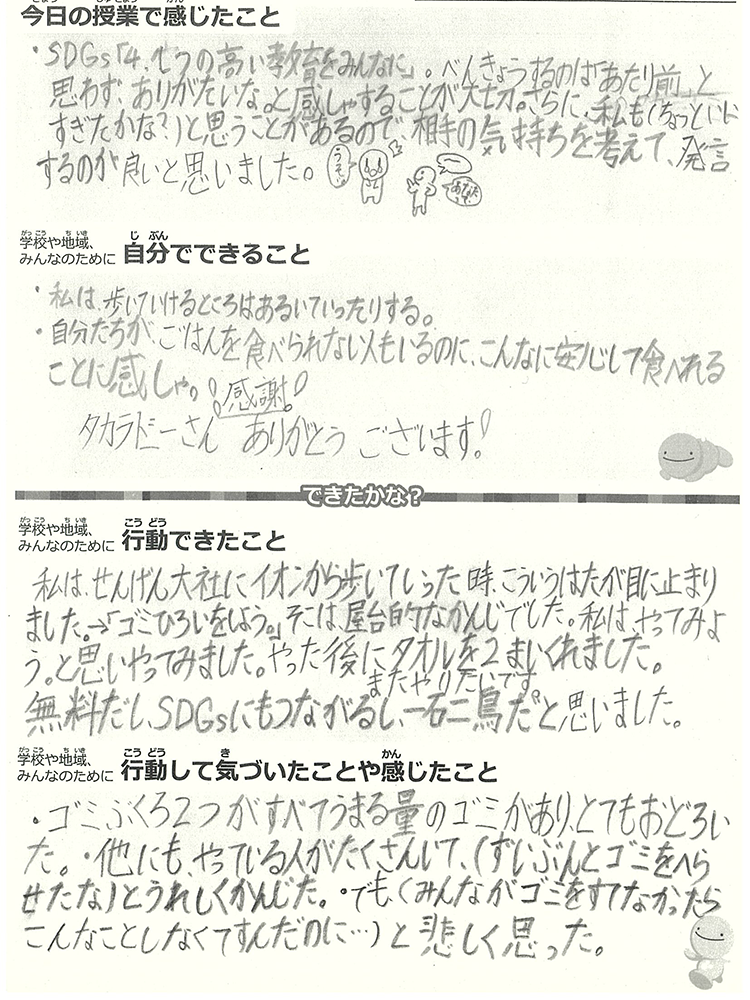 今日の授業で感じたこと
・SDGs「4、しつの高い教育をみんなに」。べんきょうするのは「あたり前」と
思わず、ありがたいな。と感しゃすることが大切。さらに、私も(ちょっといい
すぎたかな?)と思うことがあるので、相手の気持ちを考えて、発言
するのが良いと思いました。
学校や地域、みんなのために 自分でできること
・私は、歩いていけるところはあるいていったりする。
・自分たちが、ごはんを食べられない人もいるのに、こんなに安心して食べれる
ことに感しゃ。感謝!
タカラトミーさん ありがとう ございます!
できたかな?
学校や地域、みんなのために 行動できたこと
私は、せんげん大社にイオンから歩いていった時、こういうはたが目に止まり
ました。→「ゴミひろいをしよう。」そこは、屋台的なかんじでした。私は、やってみよ
う。と思いやってみました。やった後にタオルを2まいくれました。
またやりたいです。
無料だし、SDGsにもつながるし、一石二鳥だと思いました。
学校や地域、みんなのために 行動して気づいたことや感じたこと
・ゴミぶくろ2つがすべてうまる量のゴミがあり、とてもおどろい
た。・他にも、やっている人がたくさんいて、(ずいぶんとゴミをへら
せたな)とうれしくかんじた。・でも、(みんながゴミをすてなかったら
こんなことしなくてすんだのに…)と悲しく思った。